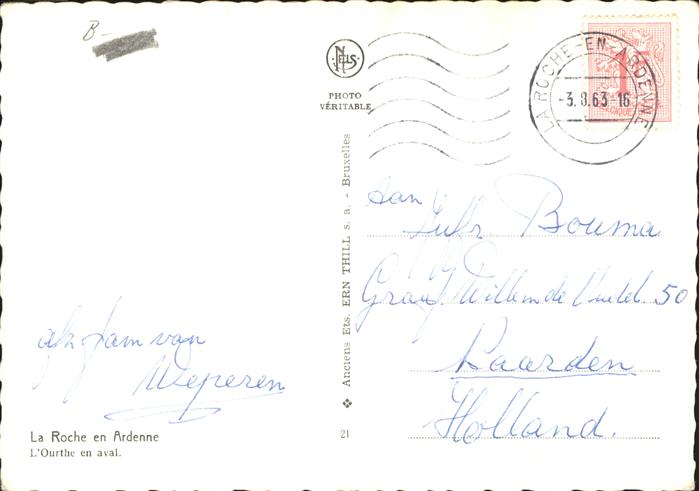 B-
NELS
PHOTO
VÉRITABLE
LA ROCHE-EN-ARDENNE
-3.8.63 16
BELGIQUE
Anciens Ets. ERN THILL s. a. - Bruxelles
21
aan
Jufr Bouma
Graaf Willem de 50
Naarden
Holland.
afz fam van
Weperen
La Roche en Ardenne
L'Ourthe en aval.